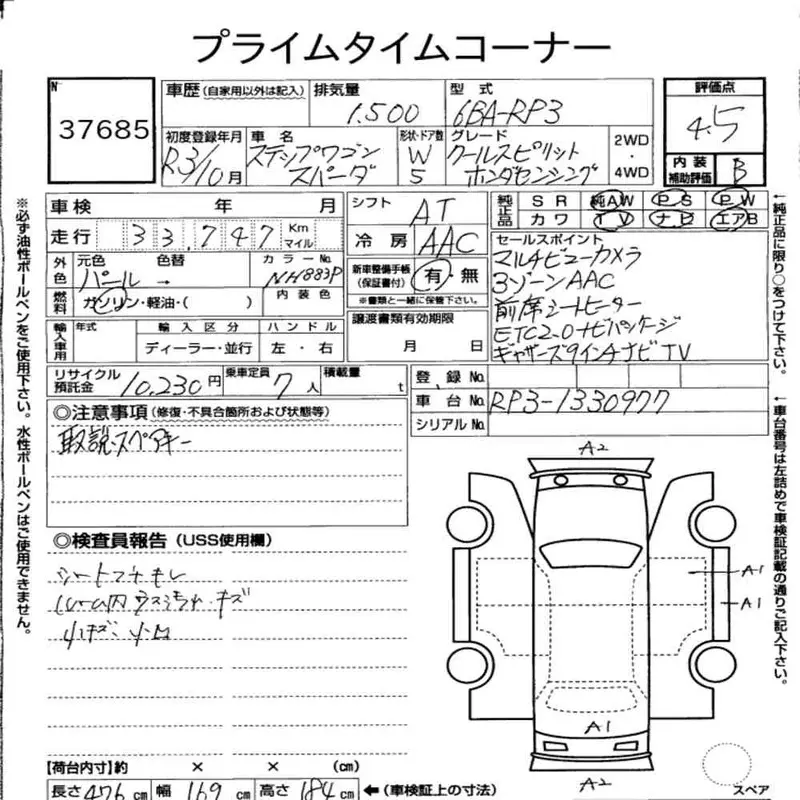 プライムタイムコーナー
№ 37685
車歴(自家用以外は記入) 排気量 1.500 型式 6BA-RP3
評価点 4.5
初度登録年月 R3/10月 車名 ステップワゴン スパーダ 形状・ドア数 W 5 グレード クールスピリット ホンダセンシング 2WD・4WD
内装補助評価 B
車検 年 月 シフト AT
純正品 SR 純AW PS PW
カワ TV ナビ エアB
走行 33.747 Km マイル 冷房 AAC
セールスポイント
マルチビューカメラ
3ゾーンAAC
前席シートヒーター
ETC2.0ナビパッケージ
ギャザーズ9インチナビTV
外色 元色 パール 色替 → カラーNo. NH883P
新車整備手帳(保証書付) 有・無
※書類と一緒に保管下さい。
燃料 ガソリン・軽油・( ) 内装色
譲渡書類有効期限 月 日
輸入車用 年式 輸入区分 ハンドル
ディーラー・並行 左・右
リサイクル預託金 10.230円 乗車定員 7人 積載量 t
登録No.
車台No. RP3-1330977
シリアルNo.
◎注意事項(修復・不具合箇所および状態等)
取説・スペアキー
◎検査員報告(USS使用欄)
小キズ・小凹
A2
A1
A1
A1
A2
スペア
【荷台内寸】約 × × (cm)
長さ476cm 幅169cm 高さ184cm ←(車検証上の寸法)
※必ず油性ボールペンをご使用下さい。水性ボールペンはご使用できません。
←純正品に限り○をつけて下さい。
←車台番号は左詰めで車検証記載の通りご記入下さい。